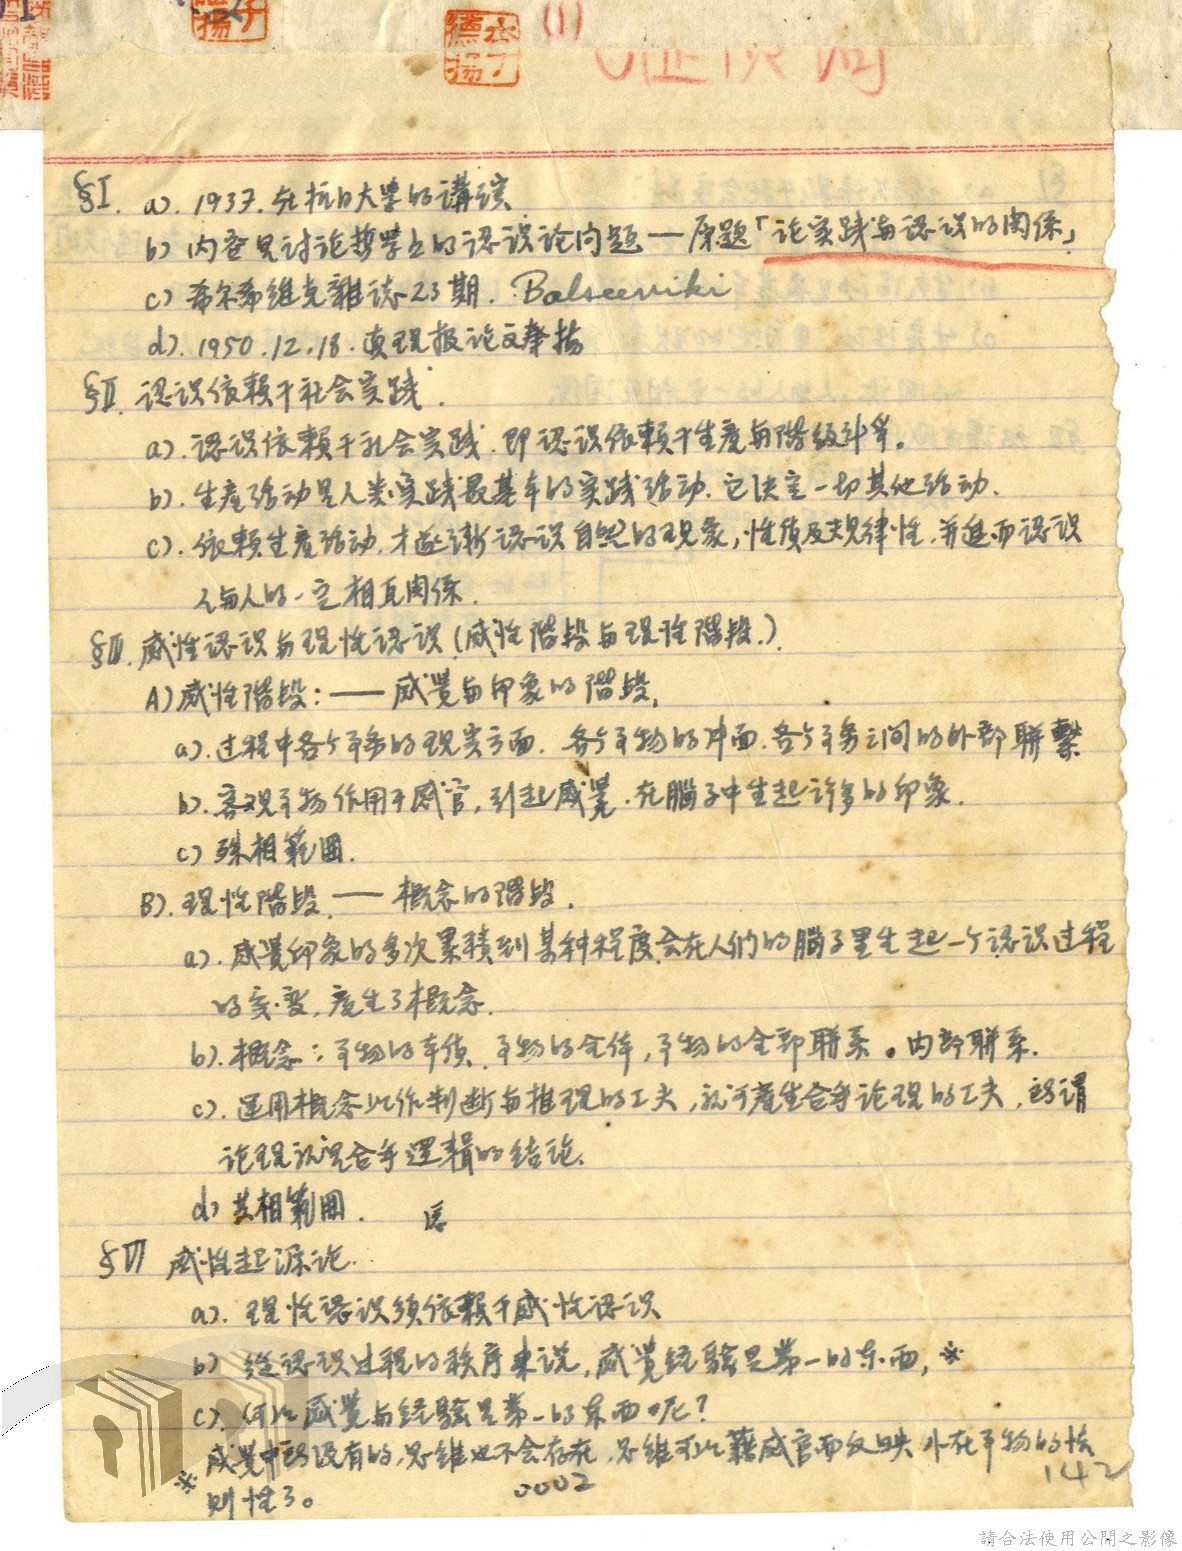 (1)
§I. a). 1937. 在抗日大学的講演
b) 内容是討论哲学上的認识论问题 — 原題「论实践与認识的関係」
c) 希尔希維克雜誌 23期. Balseeviki
d). 1950.12.18. 真理报论文奉揚
§II. 認识依賴于社会实践.
a). 認识依賴于社会实践. 即認识依賴于生産与階级斗争。
b). 生産活动是人类实践最基本的实践活动. 它决定一切其他活动.
c). 依賴生産活动, 才逐渐認识自然的现象, 性质及规律性. 并進而認识
人与人的一定相互関係.
§III. 感性認识与理性認识 (感性階段与理性階段.).
A) 感性階段: — 感覚与印象的階段.
a). 过程中各个事务的现实方面. 各个事物的冲面. 各个事务之间的外部聯繫
b). 客观事物作用于感官, 引起感覚. 在腦子中生起许多的印象.
c) 殊相範囲.
B). 理性階段. — 概念的階段.
a). 感覚印象的多次累積到某种程度, 会在人们的腦子里生起一个認识过程
的突变, 産生了概念.
b). 概念: 事物的本质, 事物的全体, 事物的全部聯系。内部聯系.
c). 運用概念以作判断与推理的工夫, 就可産生合乎论理的工夫, 所谓
论理就是合乎邏輯的结论.
d) 共相範囲.
§IV 感性起源论.
a). 理性認识須依賴于感性認识
b) 從認识过程的秩序来说, 感覚经驗是第一的东西, ※
c). 何以感覚与经驗是第一的东西呢?
※ 感覚中所没有的, 思维也不会存在, 思维可以藉感官而反映外在事物的法
則性了。
0002
142
請合法使用公開之影像